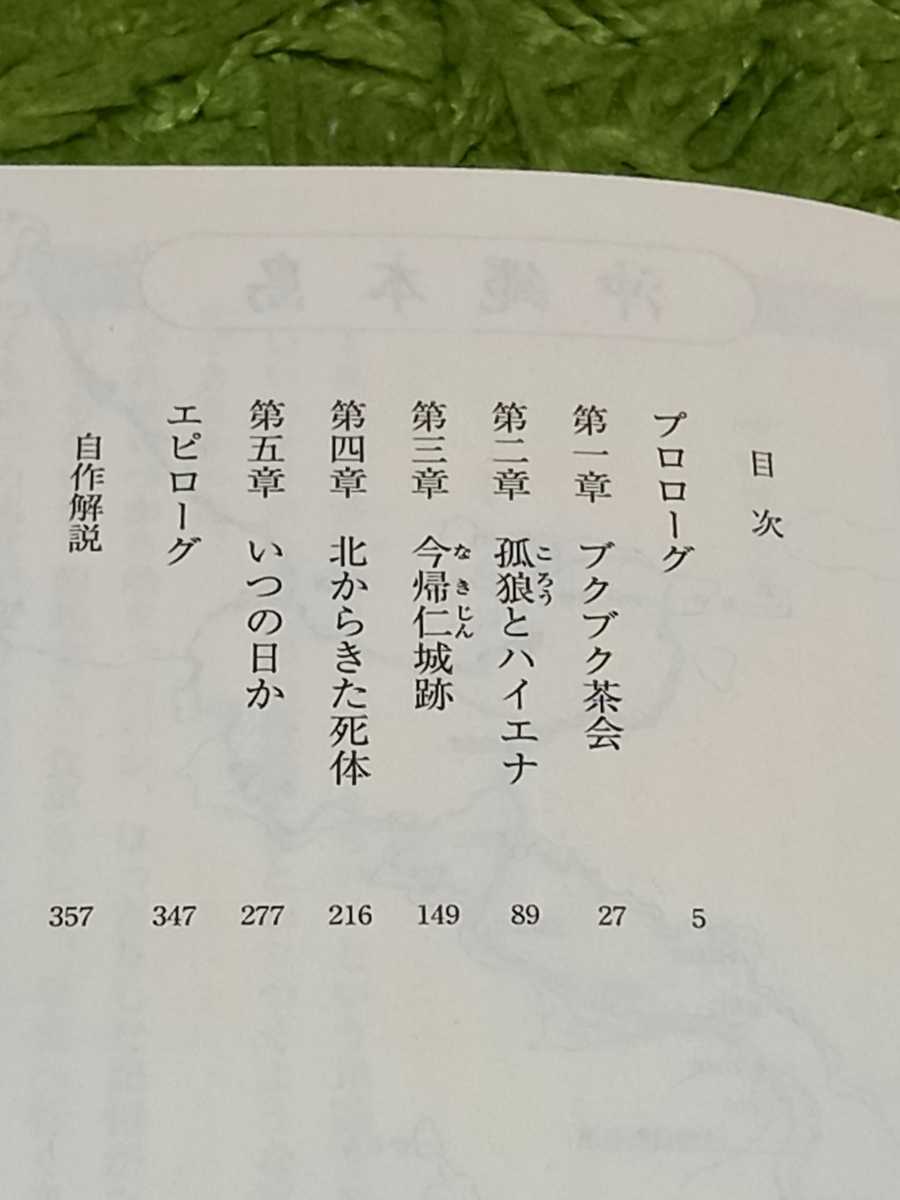 目次
プロローグ 5
第一章 ブクブク茶会 27
第二章 孤狼とハイエナ 89
ころう
第三章 今帰仁城跡 149
なきじん
第四章 北からきた死体 216
第五章 いつの日か 277
エピローグ 347
自作解説 357
沖縄本島